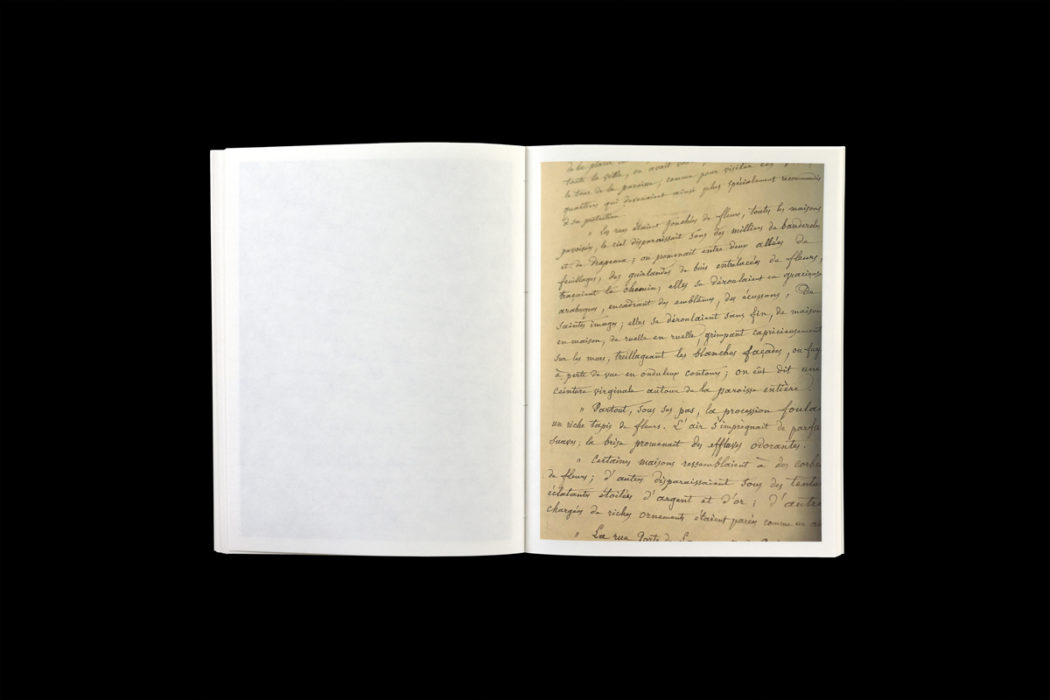 de la place
toute la ville, on avait
le tour de la paroisse, comme pour visiter
quartiers qui devenaient ainsi plus spécialement recommandés
à sa protection.
" Les rues étaient jonchées de fleurs, toutes les maisons
pavoisées, le ciel disparaissait sous des milliers de banderoles
et de drapeaux; on promenait entre deux allées de
feuillages; des guirlandes de buis entrelacées de fleurs,
traçaient le chemin; elles se déroulaient en gracieuses
arabesques, encadrant des emblèmes, des écussons, De
saintes images; elles se déroulaient sans fin, de maison
en maison, de ruelle en ruelle, grimpant capricieusement
sur les murs, treillageant les blanches façades, ou
à perte de vue en onduleux contours; on eût dit une
ceinture virginale autour de la paroisse entière.
" Partout, sous ses pas, la procession foula
un riche tapis de fleurs. L'air s'imprégnait de
suaves; la brise promenait des effluves odorantes.
" Certaines maisons ressemblaient à des corbe
de fleurs; d'autres disparaissaient sous des tentu
éclatantes étoilées d'argent et d'or; d'autre
chargées de riches ornements étaient parées comme un
" La rue Porte de